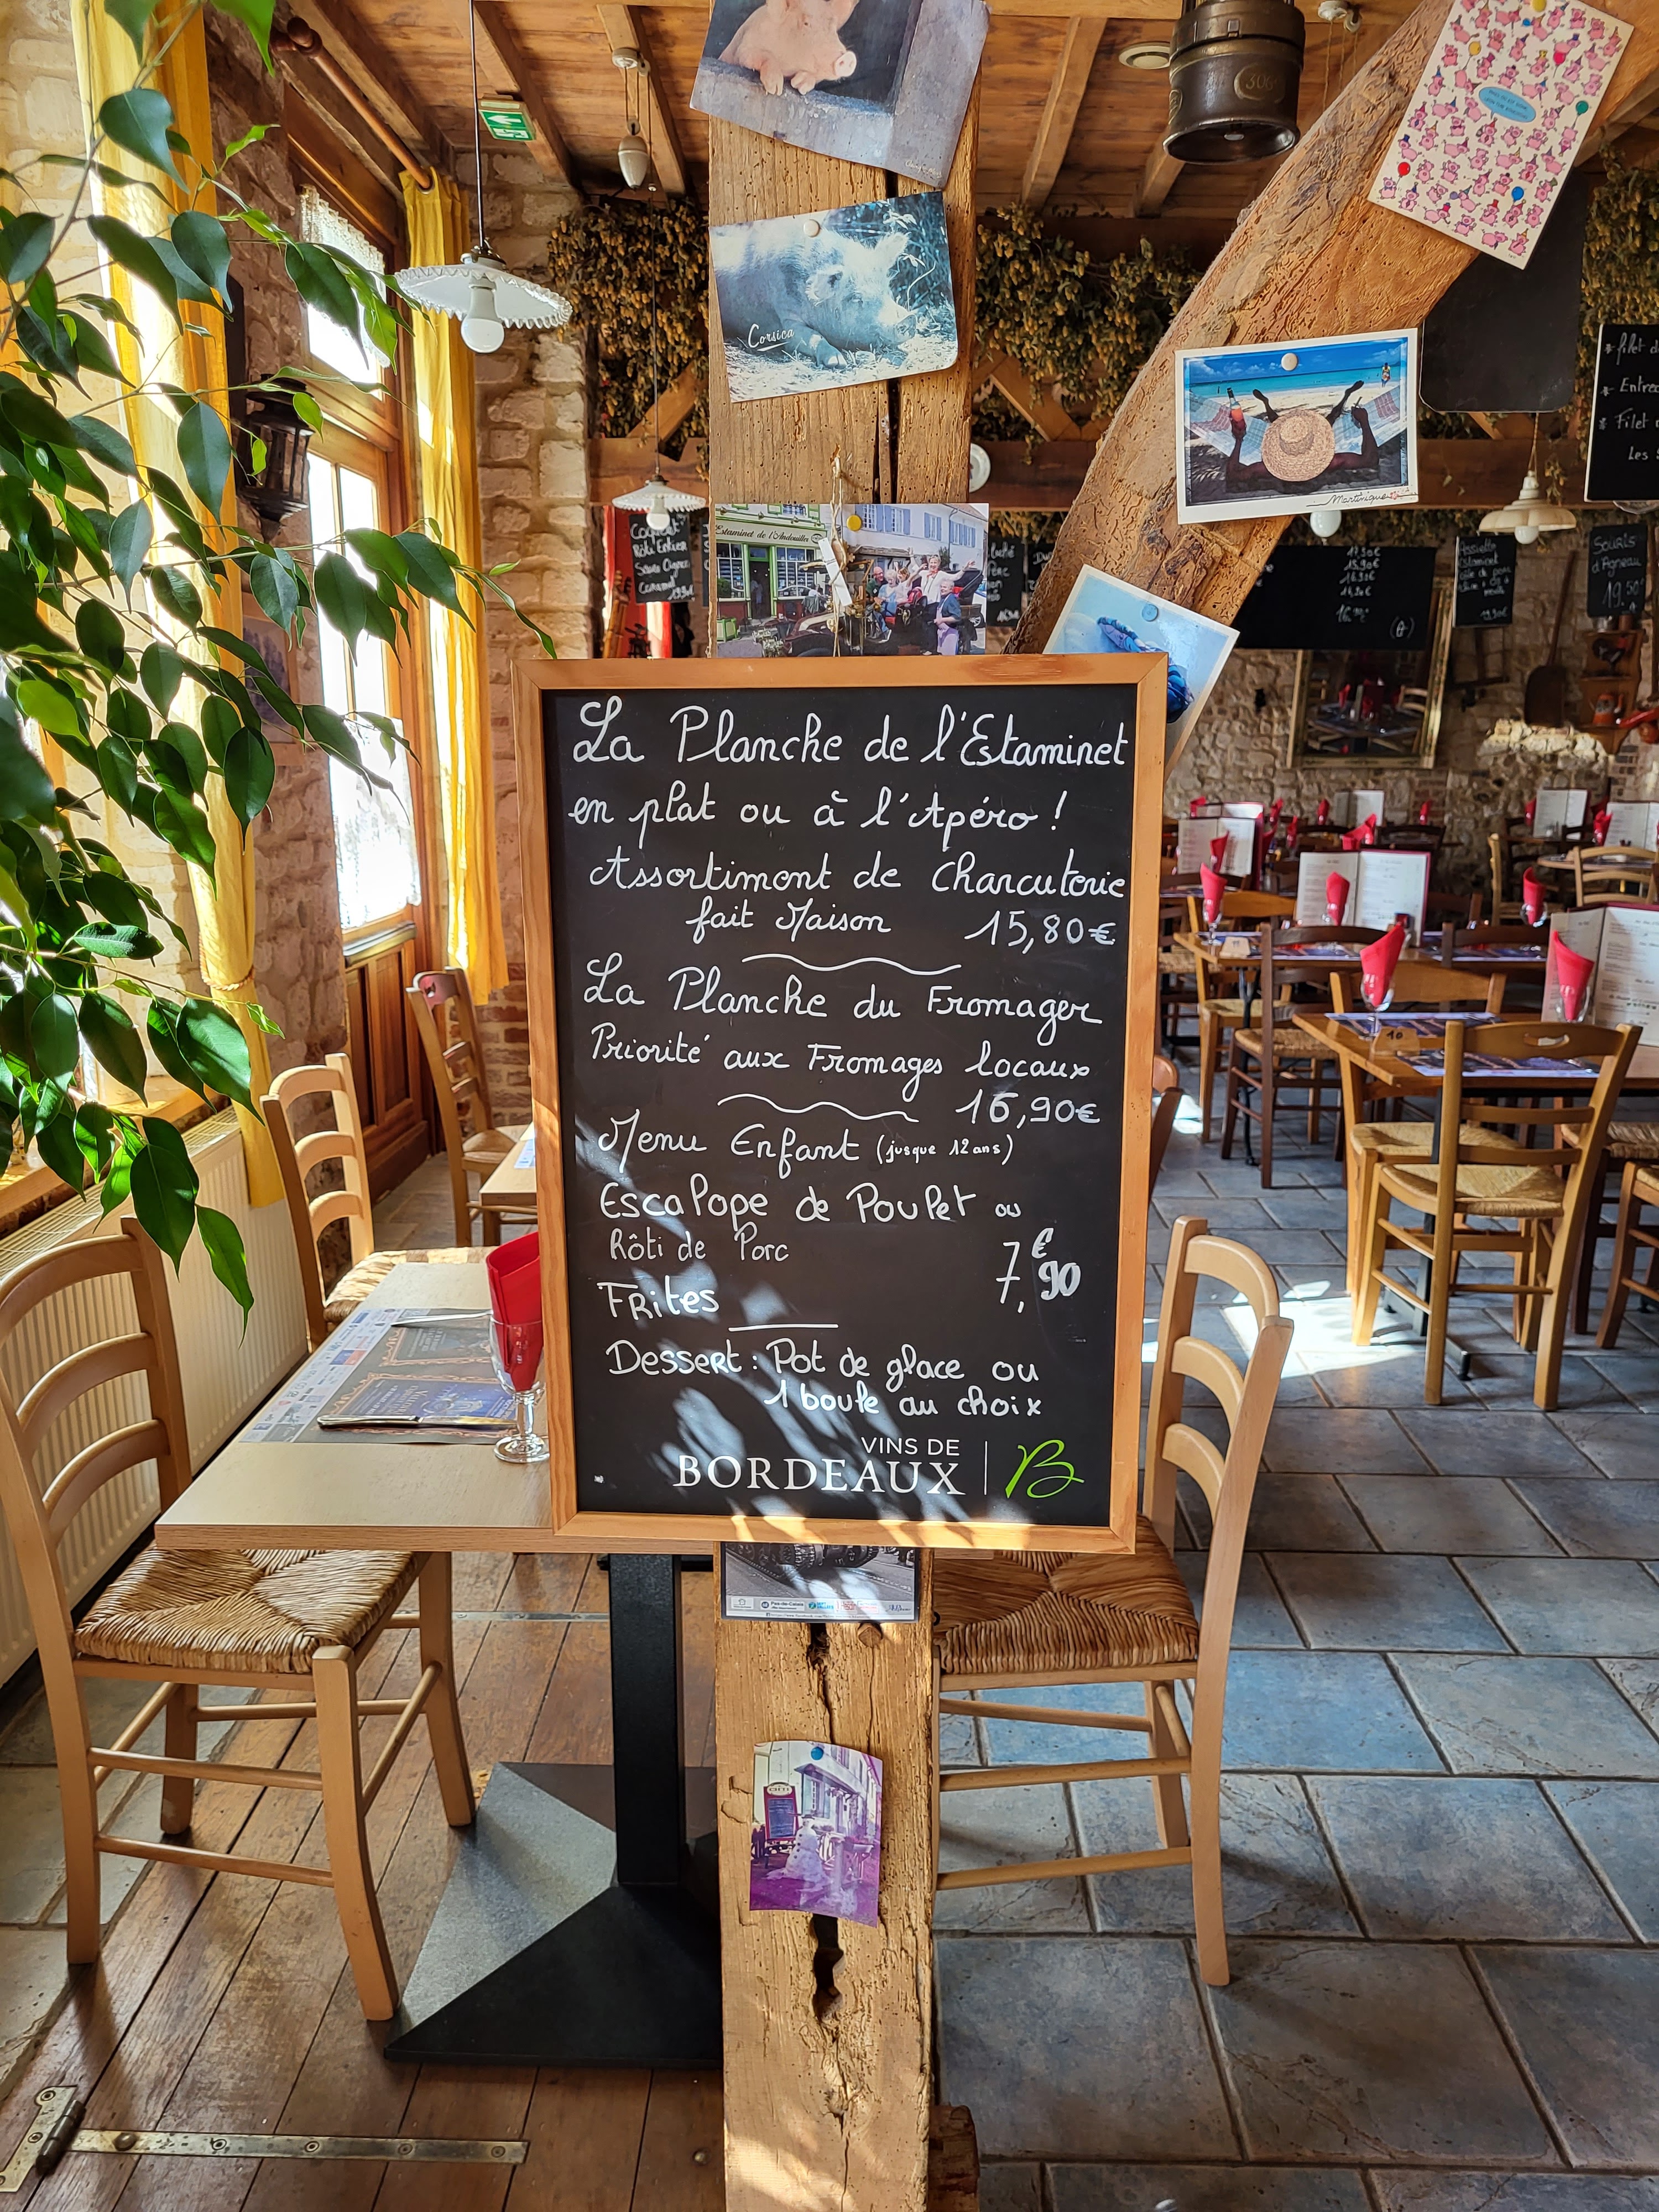 Corsica
Martinique
Estaminet de l'Andouille
306
filet d
Entrec
Filet
Les
Rôti
Sauce
Caramel
Assiette
Estaminet
Souris
d'Agneau
19.50
La Planche de l'Estaminet
en plat ou à l'Apéro !
Assortiment de Charcuterie
fait Maison 15,80€
La Planche du Fromager
Priorité aux Fromages locaux
16,90€
Menu Enfant (jusque 12 ans)
Escalope de Poulet ou
Rôti de Porc
7,90€
Frites
Dessert : Pot de glace ou
1 boule au choix
VINS DE
BORDEAUX
B
10
Pas-de-Calais